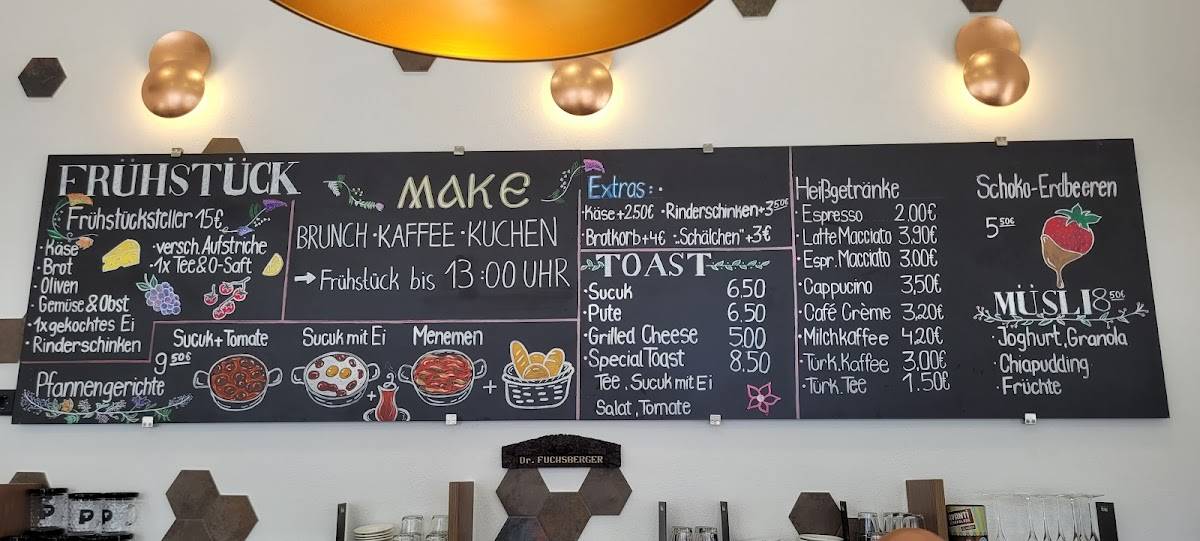 FRÜHSTÜCK
Frühstücksteller 15€
· Käse
· Brot
· Oliven
· Gemüse & Obst
· 1x gekochtes Ei
· Rinderschinken
· versch. Aufstriche
· 1x Tee & O-Saft
MAKE
BRUNCH · KAFFEE · KUCHEN
→ Frühstück bis 13:00 UHR
Pfannengerichte
9 50€
Sucuk + Tomate
Sucuk mit Ei
Menemen
+
+
Extras:
· Käse + 2.50€ · Rinderschinken + 3 50€
· Brotkorb + 4€ · "Schälchen" + 3€
TOAST
· Sucuk 6.50
· Pute 6.50
· Grilled Cheese 5.00
· Special Toast 8.50
Tee, Sucuk mit Ei
Salat, Tomate
Heißgetränke
· Espresso 2.00€
· Latte Macciato 3,90€
· Espr. Macciato 3.00€
· Cappucino 3,50€
· Café Crème 3,20€
· Milchkaffee 4,20€
· Türk. Kaffee 3.00€
· Türk. Tee 1.50€
Schoko-Erdbeeren
5 50€
MÜSLI 8 50€
· Joghurt, Granola
· Chiapudding
· Früchte
Dr. FUCHSBERGER